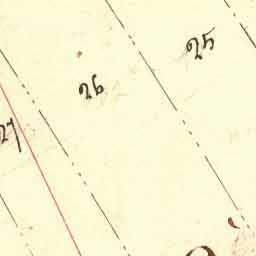 25
26
27